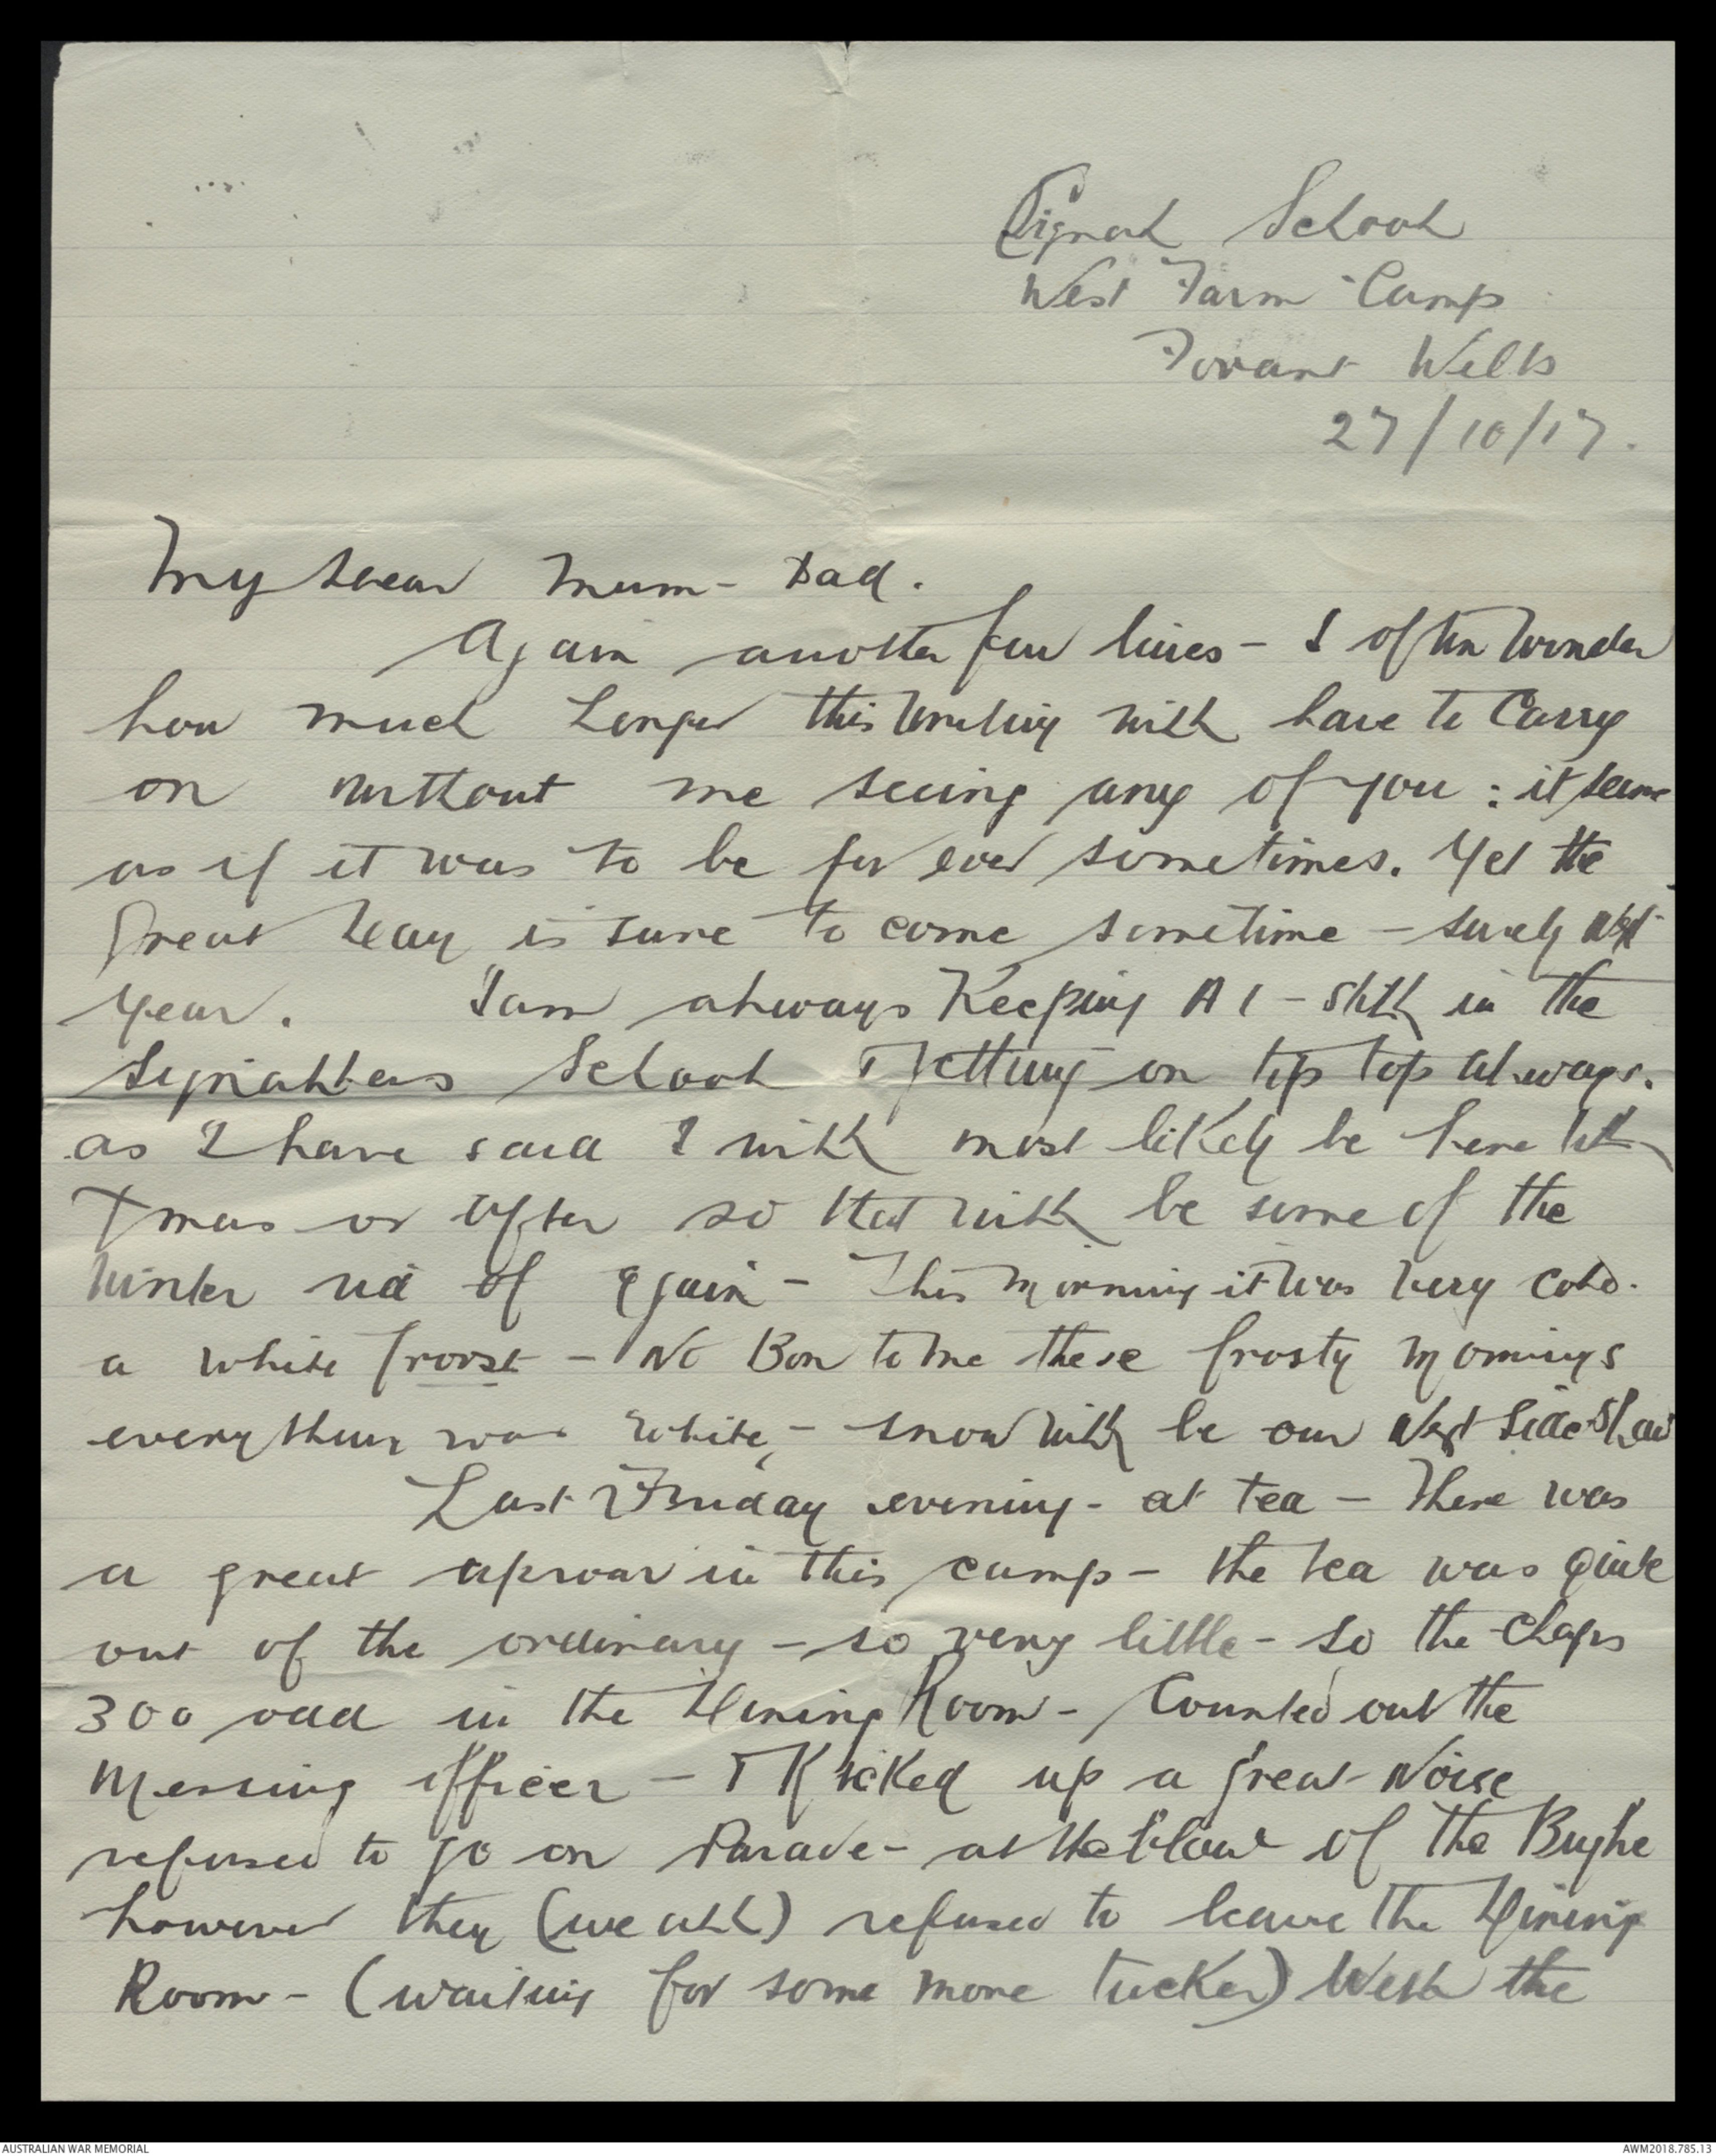 Signal School
West Farm Camp
Fovant Wilts
27/10/17.
My dear Mum - Dad.
Again another few lines - I often wonder
how much longer this writing will have to carry
on without me seeing any of you : it seems
as if it was to be for ever sometimes. Yet the
great day is sure to come sometime - surely next
year. I am always keeping A1 - still in the
Signallers School & getting on tip top always.
as I have said I will most likely be here till
Xmas or after so that will be some of the
winter rid of again - This morning it was very cold.
a white froost - No Bon to me these frosty mornings
everything was white, - snow will be our next side show
Last Friday evening - at tea - there was
a great uproar in this camp - the tea was quite
out of the ordinary - so very little - so the chaps
300 odd in the Dining Room - Counted out the
Messing officer - & Kicked up a great noise
refused to go on Parade - at the blow of the Bugle
however they (we all) refused to leave the Dining
Room - (waiting for some more tucker) Well the
AUSTRALIAN WAR MEMORIAL
AWM2018.785.13